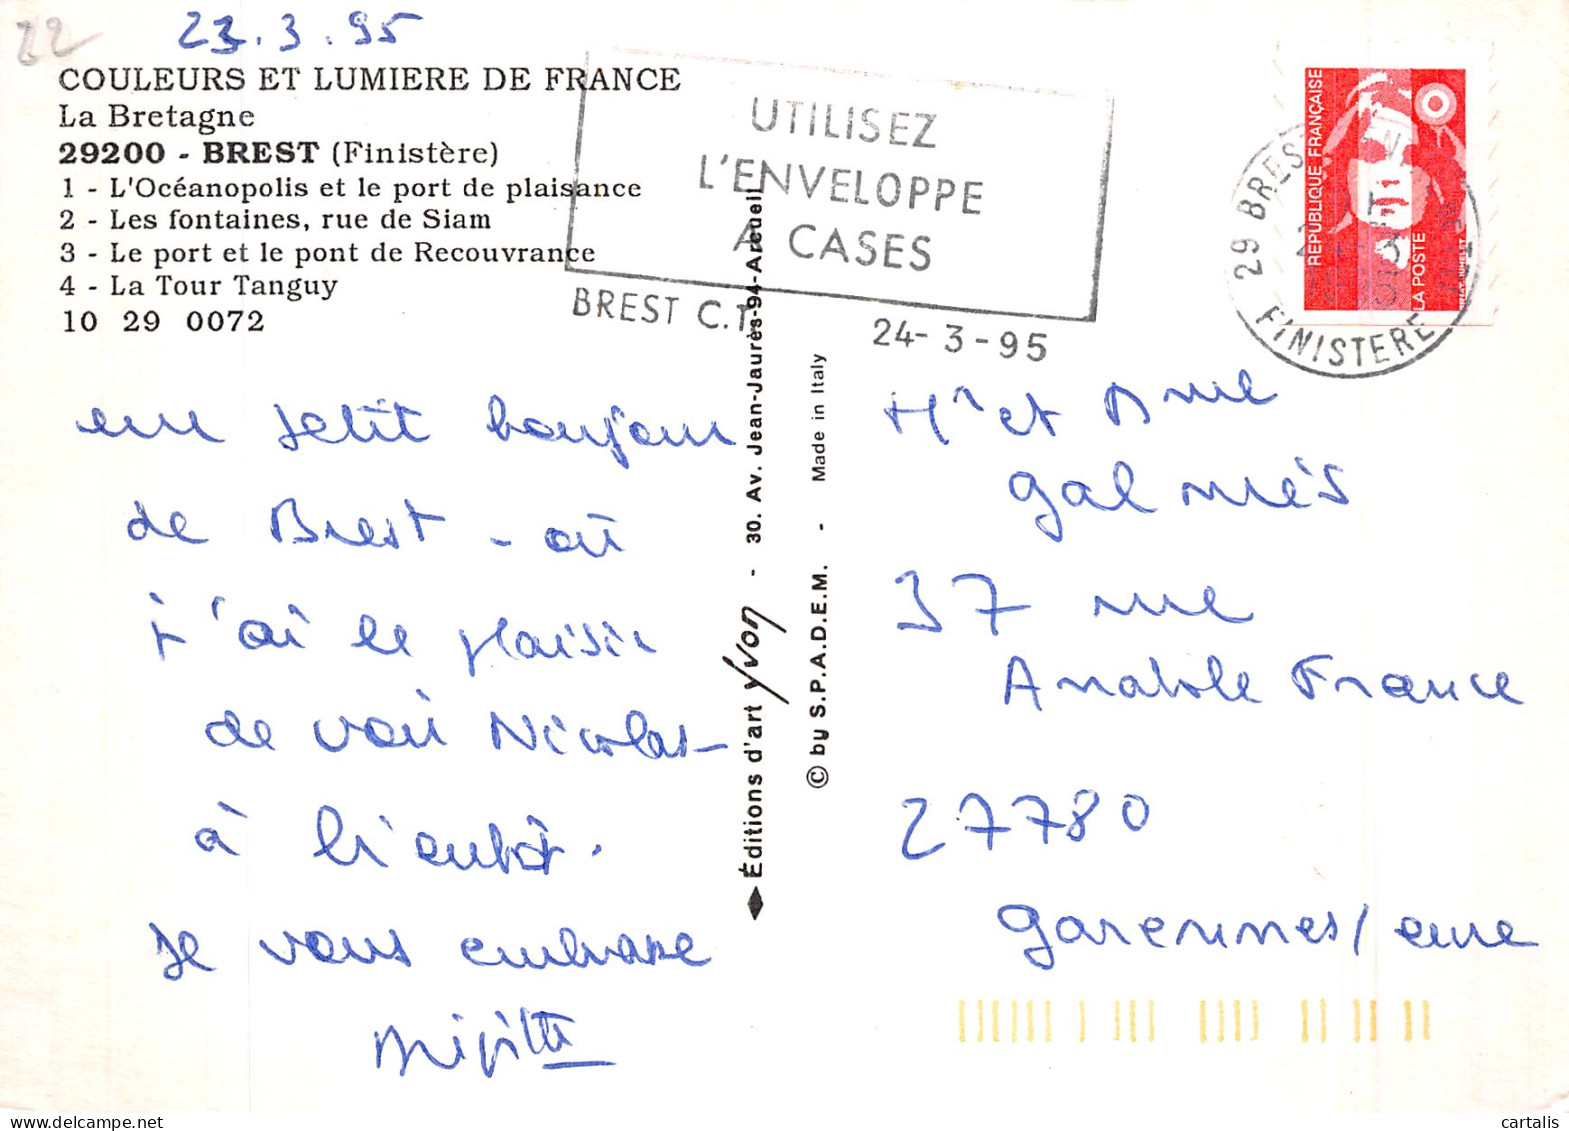 22
23.3.95
COULEURS ET LUMIERE DE FRANCE
La Bretagne
29200 - BREST (Finistère)
1 - L'Océanopolis et le port de plaisance
2 - Les fontaines, rue de Siam
3 - Le port et le pont de Recouvrance
4 - La Tour Tanguy
10 29 0072
UTILISEZ
L'ENVELOPPE
A CASES
BREST C.T.
24-3-95
29 BREST
FINISTERE
REPUBLIQUE FRANÇAISE
LA POSTE
un petit bonjour
de Brest - où
j'ai le plaisir
de voir Nicolas -
à bientôt.
Je vous embrasse
Brigitte
Éditions d'art Yvon - 30. Av. Jean-Jaurès-94-Arcueil
© by S.P.A.D.E.M. - Made in Italy
Mr et Mme
Galmés
37 rue
Anatole France
27780
Garennes/eure
cartalis